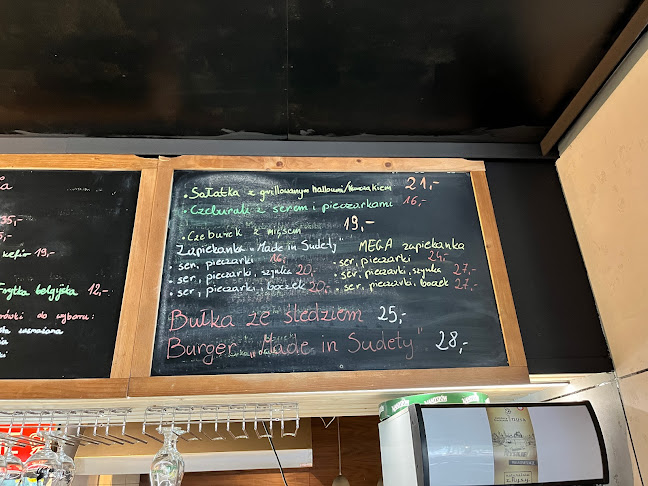 35,-
5,-
kefir 19,-
Frytka belgijska 12,-
do wyboru:
• Sałatka z grillowanym halloumi/kurczakiem 21,-
• Czeburek z serem i pieczarkami 16,-
• Czeburek z mięsem 19,-
Zapiekanka „Made in Sudety"
• ser, pieczarki 16,-
• ser, pieczarki, szynka 20,-
• ser, pieczarki, boczek 20,-
MEGA zapiekanka
• ser, pieczarki 24,-
• ser, pieczarki, szynka 27,-
• ser, pieczarki, boczek 27,-
Bułka ze śledziem 25,-
Burger „Made in Sudety" 28,-